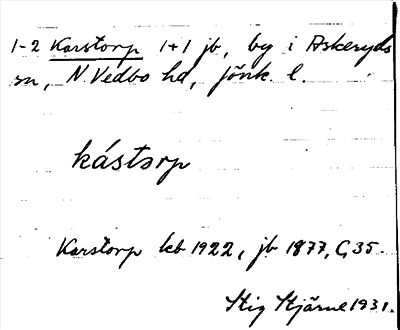 1-2 Karstorp 1+1 jb, by i Askeryds
sn, N. Vedbo hd, Jönk. l.
kástorp
Karstorp kb 1922, jb 1877, C, 35.
Stig Stjärne 1931.